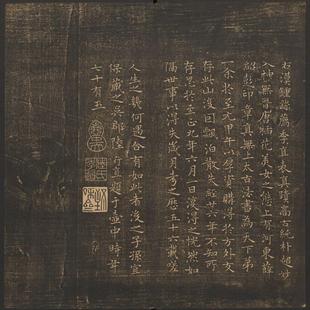 右漢鍾繇薦季直表真蹟高古純朴超妙
入神無晉唐插花美女之態上有河東薛
紹彭印章真無上太古法書為天下第
一余於至元甲午以厚資購得於方外友
存此山後因飄泊散失經廿六年不知所
存忽於至正九年六月一日復得之恍然如
隔世事以得失歲月考之歷五十六載
人生之幾何遇合有如此者後之子孫宜
保藏之吳郡陸行直題于壺中時年
七十有五